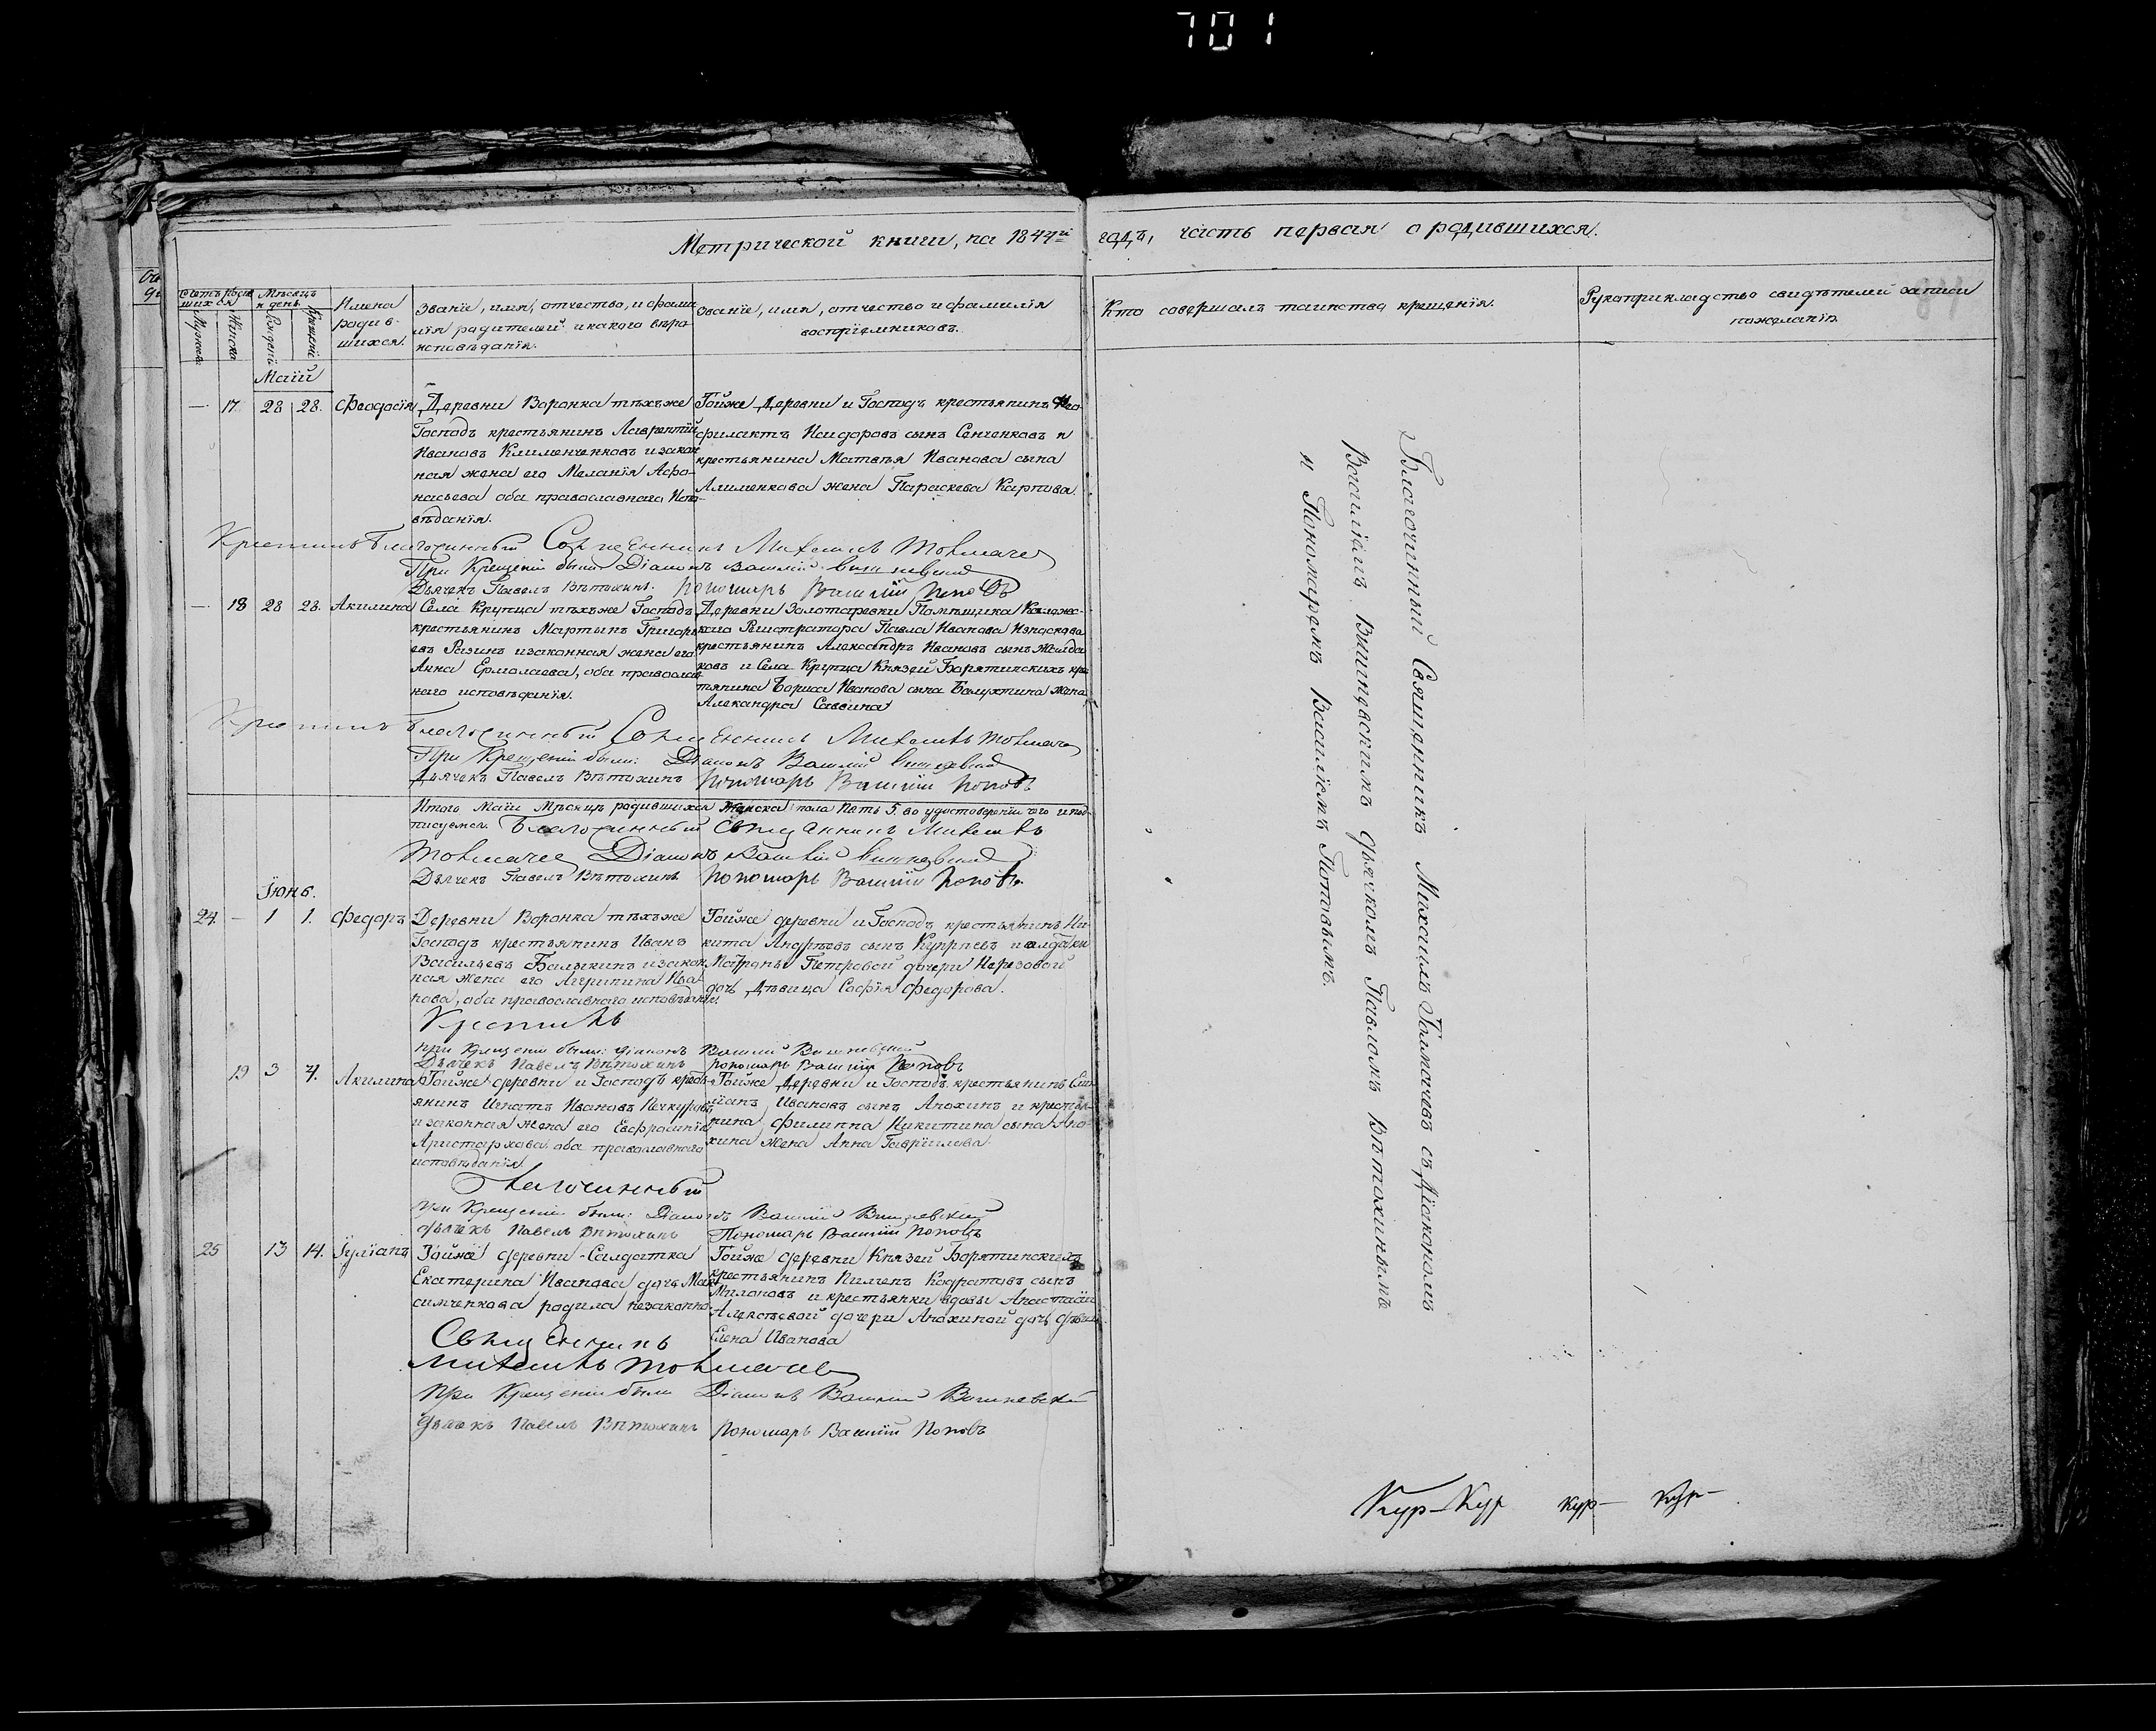 701
Метрической книги, на 1844й годъ, часть первая о родившихся.
Счетъ родив
шихся
Мѣсяцъ
и день.
Мужеска
Женска
Рожденія
Крещенія
Имена
родив-
шихся.
Званіе, имя, отчество, и фами
лія родителей и какого вѣро
исповѣданія.
Званіе, имя, отчество и фамилія
воспріемниковъ.
Кто совершалъ таинство крещенія.
Рукоприкладство свидѣтелей записи
по желанію
Маій
— 17. 28 28. Феодосія
Деревни Воронка тѣхъ же
Господъ крестьянинъ Лаврентій
Ивановъ Клименченковъ и закон
ная жена его Меланія Афо-
насьева оба православнаго Испо-
вѣданія.
Тойже Деревни и Господъ крестьянинъ Фео-
филактъ Исидоровъ сынъ Сенченковъ и
крестьянина Матвѣя Иванова сына
Алименкова жена Параскева Карпова.
Крестилъ Благочинный Священникъ Михаилъ Толмачев
При Крещеніи были Діаконъ Василій Вишневскій
Дьячекъ Павелъ Вѣтохинъ. Пономарь Василій Поповъ
— 18 28 28. Акилина
Села Крупца тѣхъ же Господъ
крестьянинъ Мартынъ Григорь
евъ Разинъ и законная жена его
Анна Ермолаева, оба православ
наго исповѣданія.
Деревни Золотаревки Помѣщика Коллежс-
каго Регистратора Павла Иванова
крестьянинъ Александръ Ивановъ сынъ
ковъ и Села Крупца Князей Борятинскихъ крес
тьянина Бориса Иванова сына Балухтина жена
Александра Саввина
Крестилъ Благочинный Священникъ Михаилъ Толмачев
При Крещеніи были: Діаконъ Василій Вишневскій
Дьячекъ Павелъ Вѣтохинъ Пономарь Василій Поповъ
Итого Маіи Мѣсяцѣ родившихся Женска пола Петь 5. во удостовереніи чего и под-
писуемся. Благочинный Священникъ Михаилъ
Толмачев Діаконъ Василій Вишневскій
Дьячекъ Павелъ Вѣтохинъ Пономарь Василій Поповъ.
Іюнь.
24 — 1 1. Федоръ
Деревни Воронка тѣхъ же
Господъ крестьянинъ Иванъ
Васильевъ Балыкинъ и закон
ная жена его Агрипина Ива-
нова, оба православнаго исповѣданія.
Тойже деревни и Господъ крестьянинъ Ни-
кита Андрѣевъ сынъ Купріевъ и солдатки
Матроны Петровой дочери Нерезовой
дочь Дѣвица Софія Федорова.
Крестилъ
при Крещеніи были: діаконъ Василій Вишневскій
Дьячекъ Павелъ Вѣтохинъ пономарь Василій Поповъ
19 3 4. Акилина
Тойже деревни и Господъ кресть-
янинъ Игнатъ Ивановъ Печкуровъ
и законная жена его Евфросинія
Аристархова оба православнаго
исповѣданія.
Тойже Деревни и Господъ крестьянинъ Ели
Ивановъ сынъ Анохинъ и крестья-
нина Филиппа Никитина сына Ано-
хина жена Анна Гаврилова.
Благочинный
при Крещеніи были: Діаконъ Василій Вишневскій
дьячекъ Павелъ Вѣтохинъ Пономарь Василій Поповъ
25 13 14. Іуліанъ
Тойже деревни Салдатка
Екатерина Иванова дочь Мак-
симченкова родила незаконно
Тойже деревни Князей Борятинскихъ
крестьянинъ Пименъ Кодратовъ сынъ
Милоновъ и крестьянки вдовы Анастасіи
Алексѣевой дочери Анохиной дочь дѣвица
Елена Иванова
Священникъ
Михаилъ Толмачев
при Крещеніи были Діаконъ Василій Вишневскій
дьячекъ Павелъ Вѣтохинъ Пономарь Василій Поповъ
Благочинный Священникъ Михаилъ Толмачевъ съ Діакономъ
Василіемъ Вишневскимъ дьячкомъ Павломъ Вѣтохинымъ
и Пономаремъ Василіемъ Поповымъ.
Кур—Кур кур— кур—